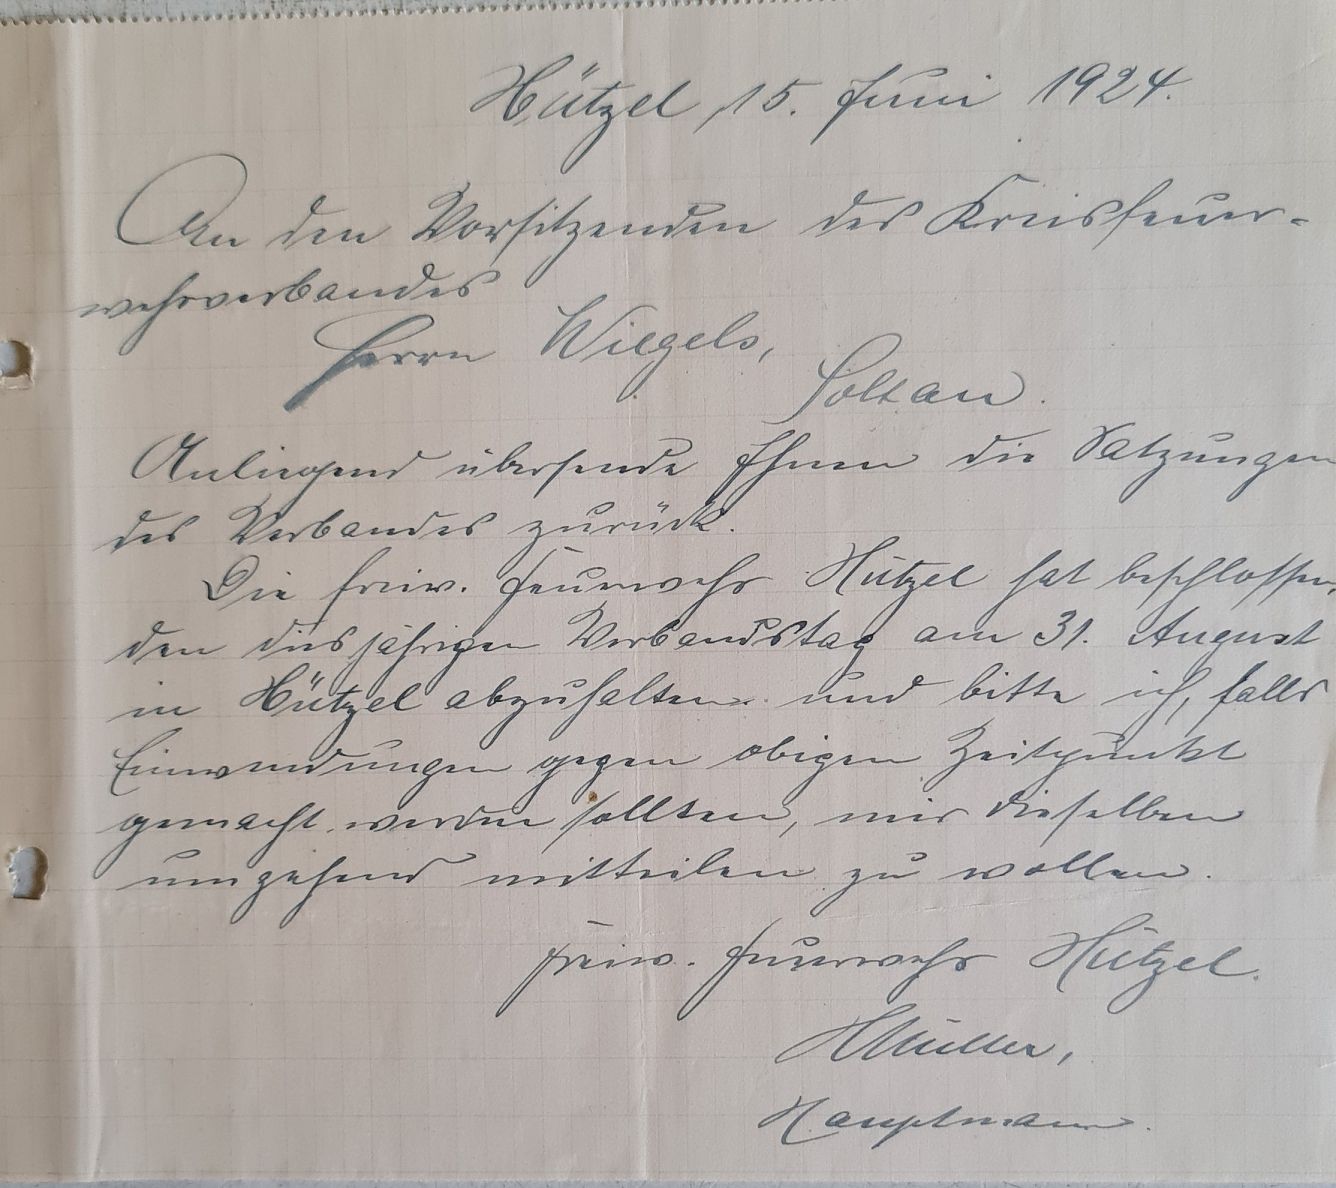 Hützel, 15. Juni 1924.
An den Vorsitzenden des Kreisfeuer-
wehrverbandes
Herrn Wiegels,
Soltau.
Anliegend übersende Ihnen die Satzungen
des Verbandes zurück.
Die freiw. Feuerwehr Hützel hat beschlossen,
den diesjährigen Verbandstag am 31. August
in Hützel abzuhalten und bitte ich, falls
Einwendungen gegen obigen Zeitpunkt
gemacht werden sollten, mir dieselben
umgehend mitteilen zu wollen.
Freiw. Feuerwehr Hützel.
HMüller,
Hauptmann.